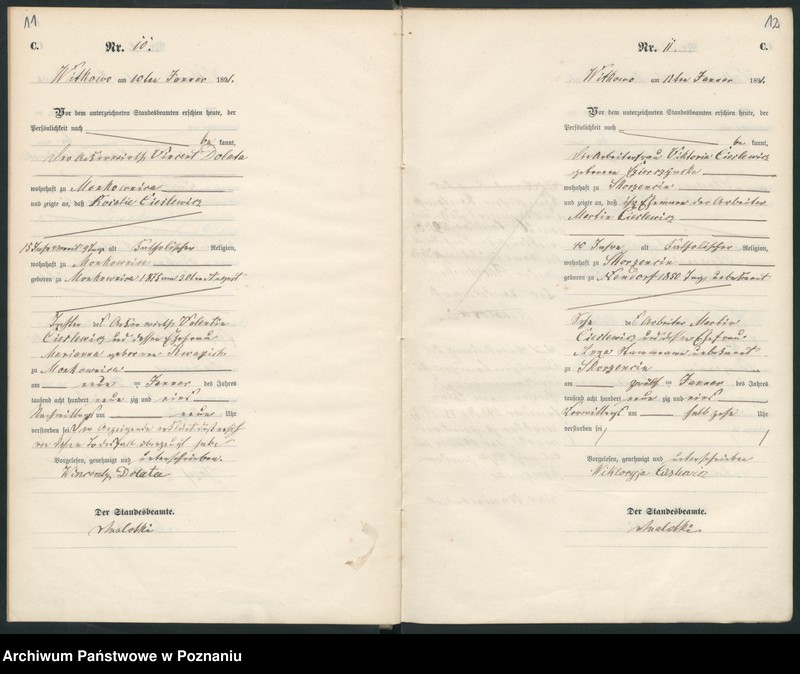 11
C. Nr. 10.
Witkowo am 10ten Januar 1891.
Vor dem unterzeichneten Standesbeamten erschien heute, der
Persönlichkeit nach
be kannt,
der Ackerwirth Vincent Dolata
wohnhaft zu
und zeigte an, daß Rosalie Cieslewicz
15 Jahre alt Katholischer Religion,
wohnhaft zu
geboren zu 1875 am 30ten August
Tochter des Ackerwirths Valentin
Cieslewicz und dessen Ehefrau
Marianna geborenen
zu
am neun ten Januar des Jahres
tausend acht hundert neun zig und eins
Nachmittags um neun Uhr
verstorben sei
Vorgelesen, genehmigt und unterschrieben.
Wincenty Dolata
Der Standesbeamte.
12
Nr. 11. C.
Witkowo am 12ten Januar 1891.
Vor dem unterzeichneten Standesbeamten erschien heute, der
Persönlichkeit nach
be kannt,
die Arbeiterfrau Viktoria Cieslewicz
geborene
wohnhaft zu Skorzencin
und zeigte an, daß ihr Ehemann der Arbeiter
Martin Cieslewicz
40 Jahre alt Katholischer Religion,
wohnhaft zu Skorzencin
geboren zu 1850 Tag unbekannt
Sohn des Arbeiter Martin
Cieslewicz und dessen Ehefrau
unbekannt
zu Skorzencin
am zwölf ten Januar des Jahres
tausend acht hundert neun zig und eins
Vormittags um halb zehn Uhr
verstorben sei
Vorgelesen, genehmigt und unterschrieben
Wiktoryja
Der Standesbeamte.
Archiwum Państwowe w Poznaniu